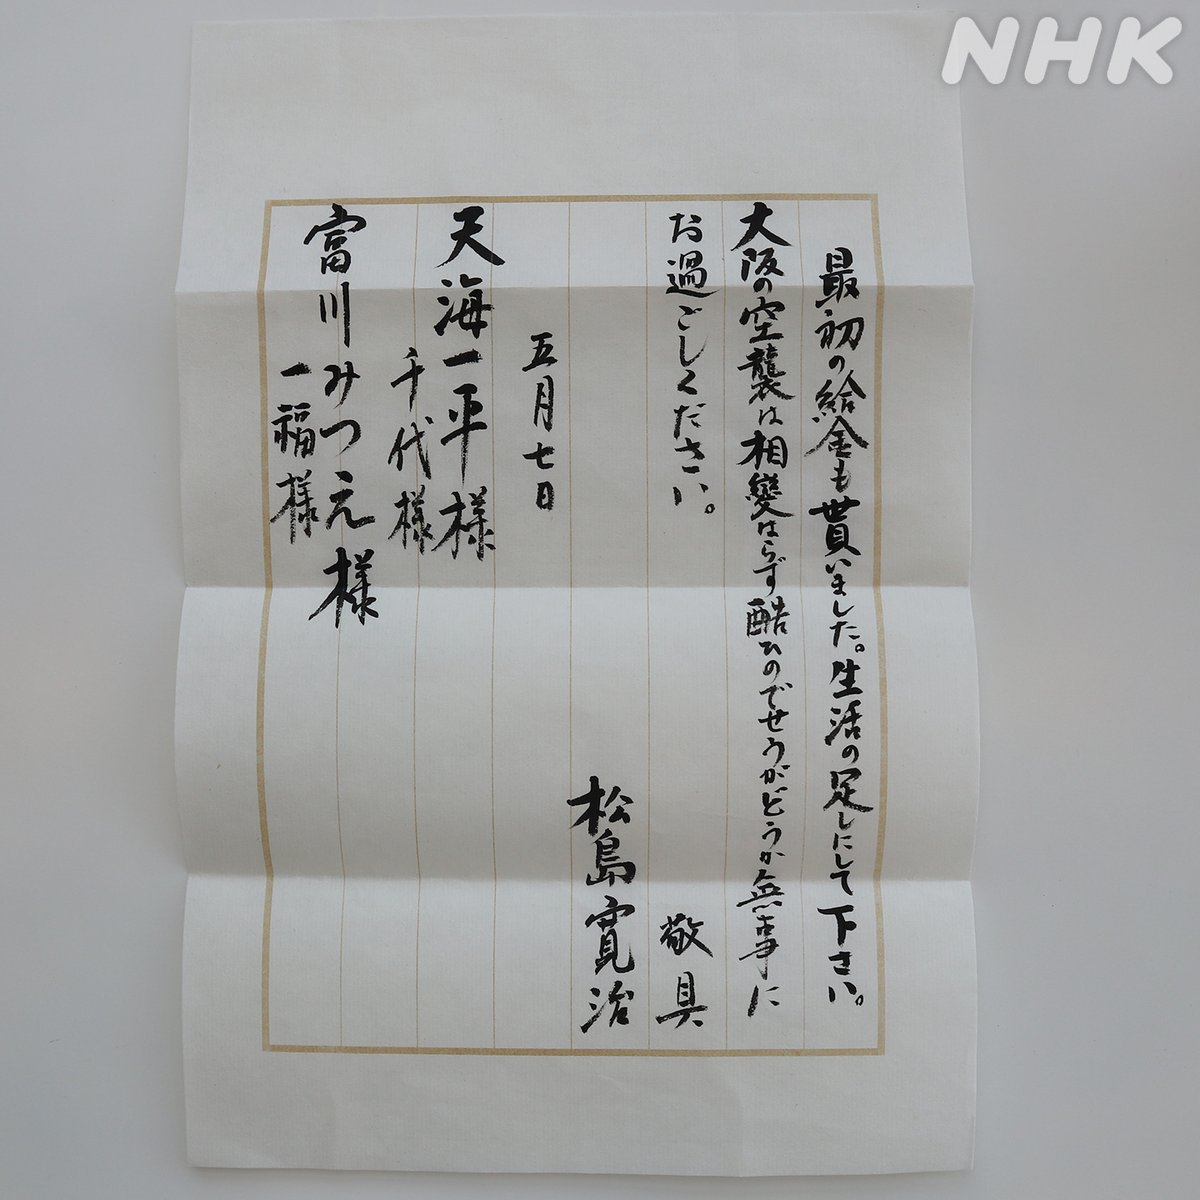 最初の給金も貰いました。生活の足しにして下さい。
大阪の空襲は相變はらず酷ひのでせうがどうか無事に
お過ごしください。
敬具
松島寛治
五月七日
天海一平様
千代様
富川みつえ様
一福様
NHK